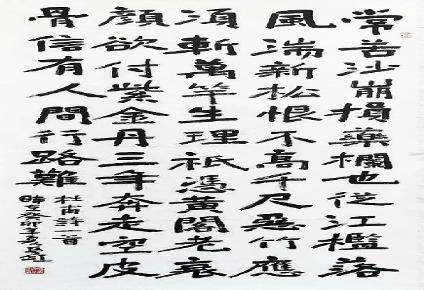 常苦沙崩損藥欄也從江檻落
風湍新松恨不高千尺惡竹應
須斬萬竿生理祇憑黃閣老衰
顏欲付紫金丹三年奔走空皮
骨信有人間行路難
杜甫詩一首
時在癸卯